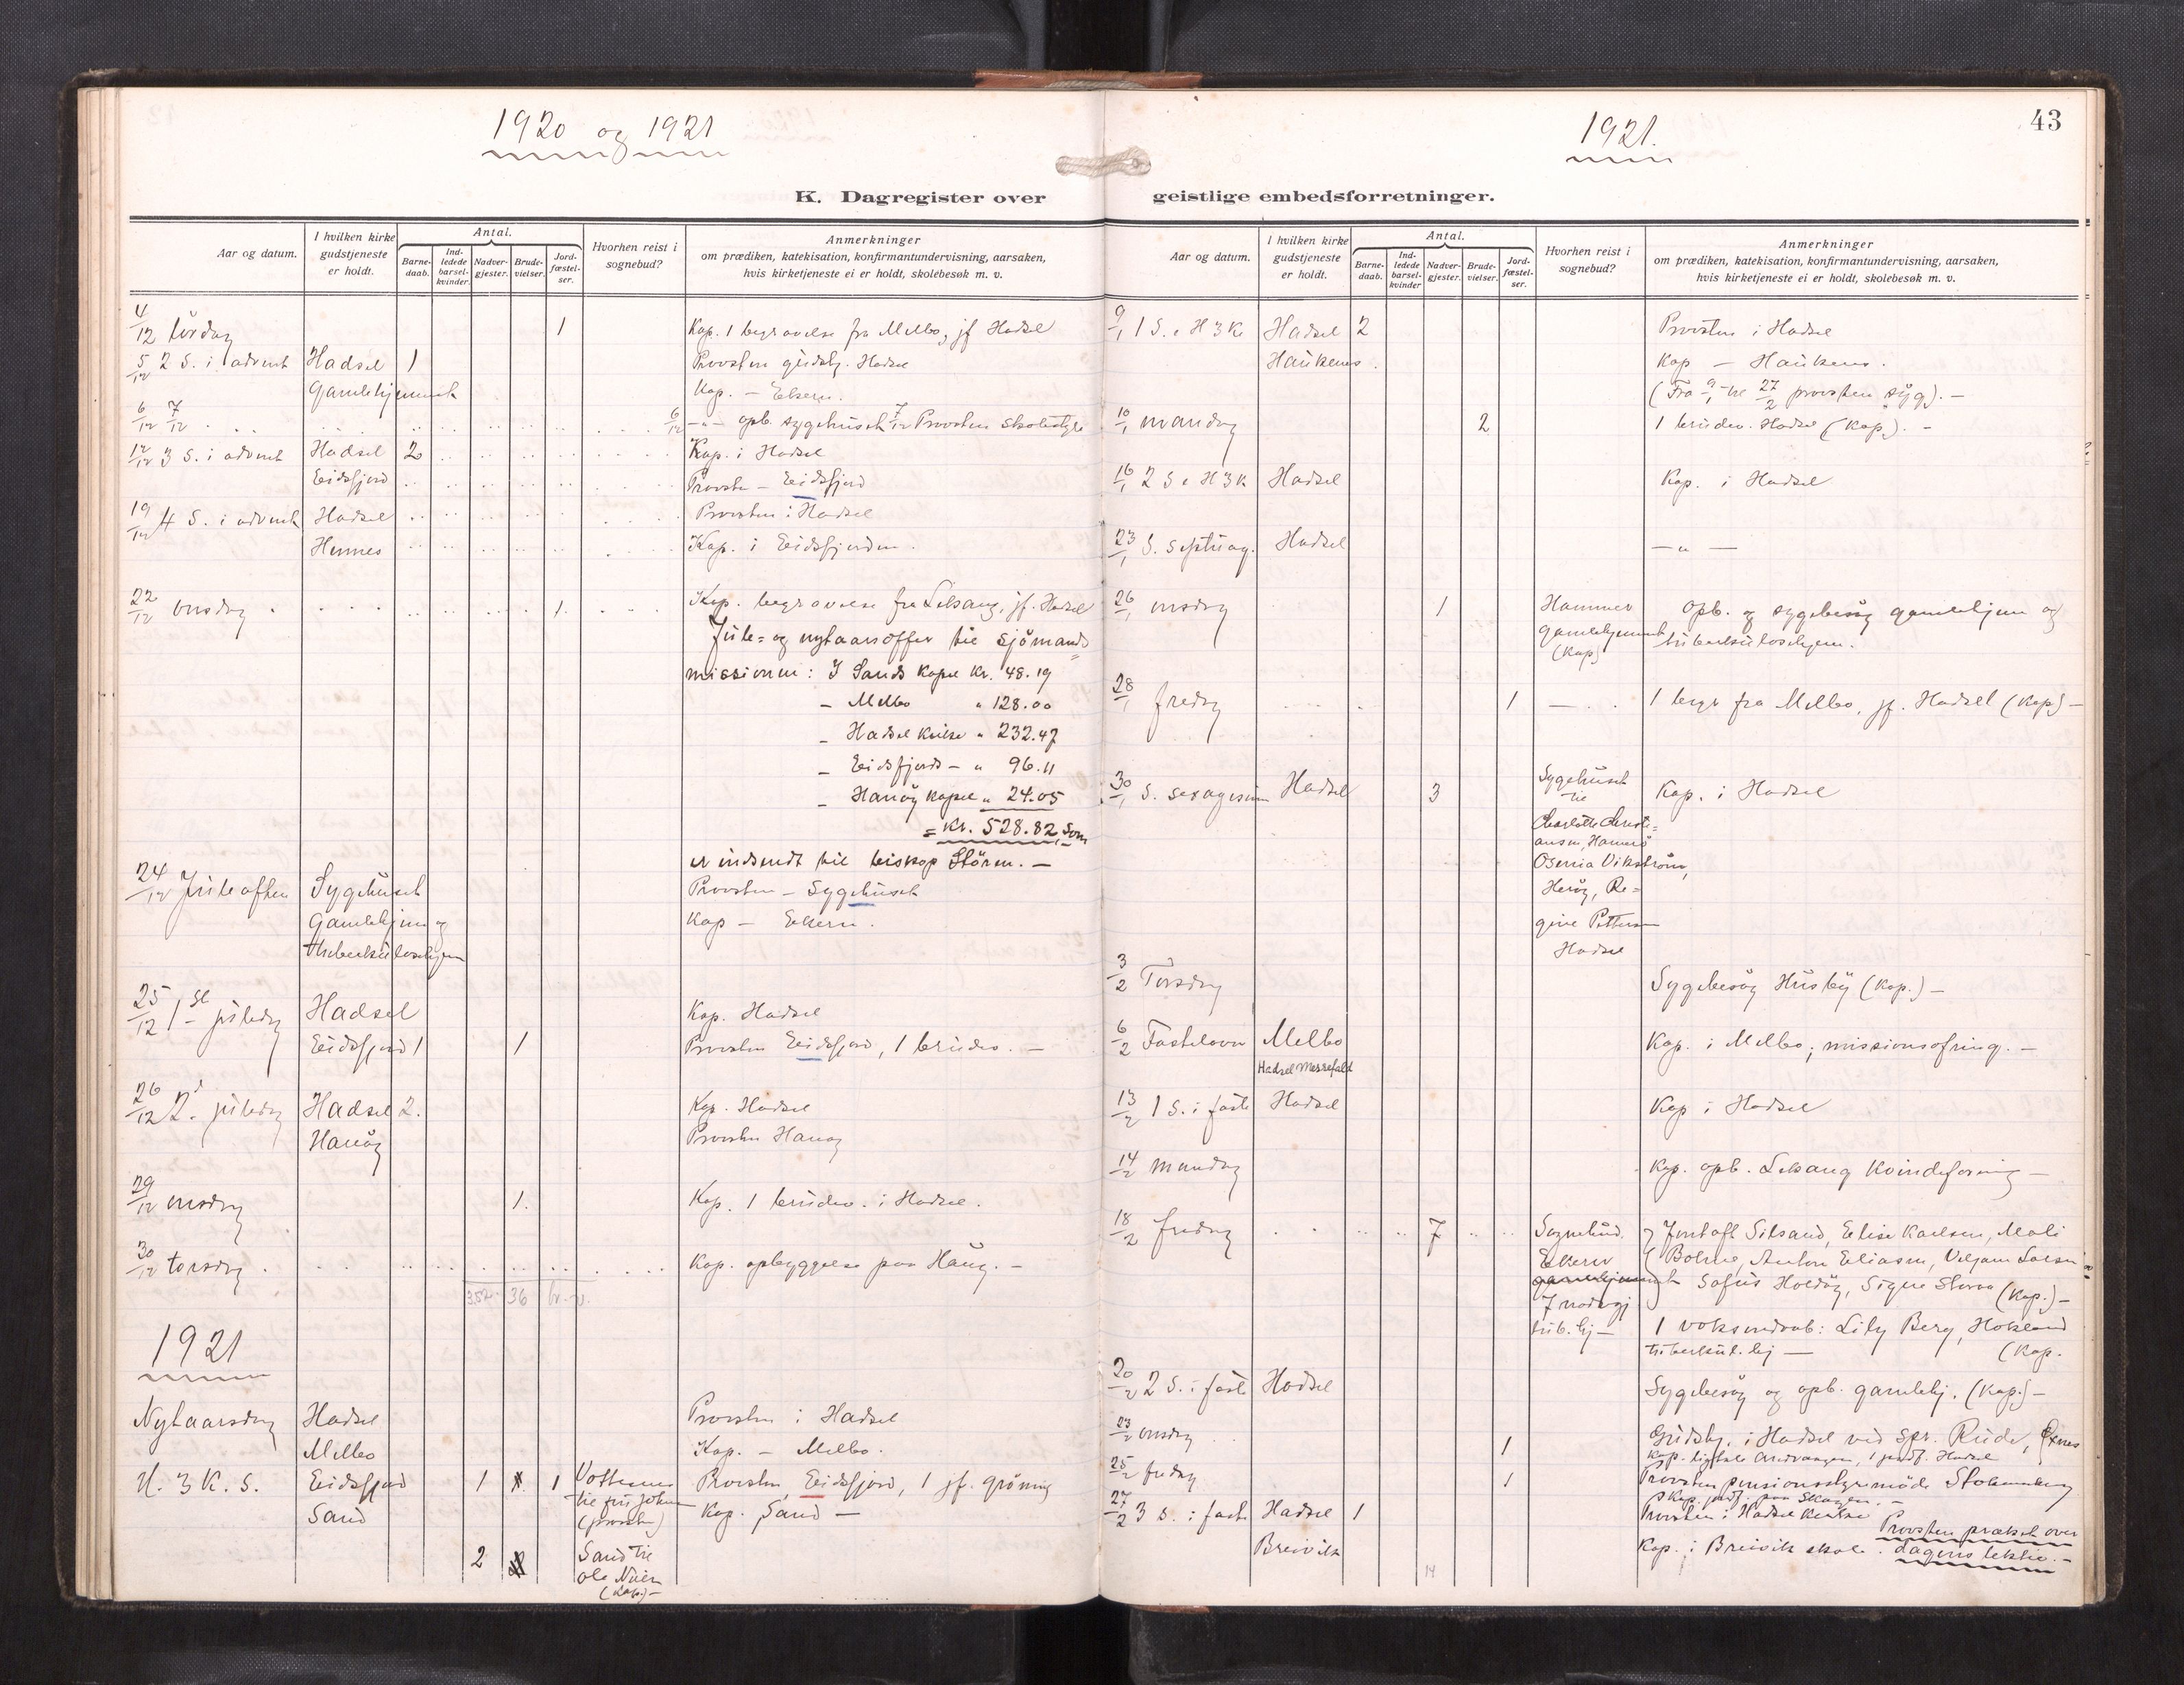 1920 og 1921
K. Dagregister over
Aar og datum.
I hvilken kirke gudstjeneste er holdt.
Antal.
Barne-daab.
Ind-ledede barsel-kvinder.
Nadver-gjester.
Brude-vielser.
Jord-fæstel-ser.
Hvorhen reist i sognebud?
Anmerkninger
om prædiken, katekisation, konfirmantundervisning, aarsaken,
hvis kirketjeneste ei er holdt, skolebesøk m. v.
4/12 lördag 1 Kap. 1 begravelse fra Melbo, jf Hadsel
5/12 2 S. i advent Hadsel 1 Provsten gudstj. Hadsel
Gamlehjemmet Kap. - Ekern.
6/12 7/12 6/12 -"- opb. sygehuset 7/12 Provsten skolestyre
12/12 3 S. i advent Hadsel 2 Kap. i Hadsel
Eidsfjord Provsten - Eidsfjord
19/12 4 S. i advent Hadsel Provsten i Hadsel
Hennes Kap. i Eidsfjorden.
22/12 onsdag 1. Kap. begravelse fra Leksang, jf. Hadsel
Jule= og nytaarsoffer til sjömands=
missionen: I Sands kapel Kr. 48.19
- Melbo " 128.00
- Hadsel kirke " 232.47
- Eidsfjords - " 96.11
- Hanöy kapel " 24.05
= Kr. 528.82, som
er indsendt til biskop Störm. -
24/12 Juleaften Sygehuset Provsten - Sygehuset
Gamlehjem og Kap - Ekern.
tuberkuloschjem
25/12 1ste juledag Hadsel Kap. Hadsel
Eidsfjord 1 1 Provsten Eidsfjord, 1 brudev. -
26/12 2. juledag Hadsel 2. Kap. Hadsel
Hanöy Provsten Hanöy
29/12 onsdag 1. Kap. 1 brudev. i Hadsel.
30/12 torsdag. Kap. opbyggelse paa Haug. -
352 36 br. v.
1921
Nytaarsdag Hadsel Provsten i Hadsel
Melbo Kap. - Melbo.
H. 3 K. S. Eidsfjord 1 1 Provsten, Eidsfjord, 1 jf. gröning
Sand (provsten) Kap. Sand -
2 Sand til
Ole
(Kap.) -
1921.
43
geistlige embedsforretninger.
Aar og datum.
I hvilken kirke gudstjeneste er holdt.
Antal.
Barne-daab.
Ind-ledede barsel-kvinder
Nadver-gjester.
Brude-vielser.
Jord-fæstel-ser.
Hvorhen reist i sognebud?
Anmerkninger
om prædiken, katekisation, konfirmantundervisning, aarsaken,
hvis kirketjeneste ei er holdt, skolebesøk m. v.
9/1 1 S. e H 3 K Hadsel 2 Provsten i Hadsel
Haukenes. Kap - Haukenes.
(Fra 9/1 til 27/2 provsten syg). -
10/1 mandag 2 1 brudev. Hadsel (Kap.). -
16/1 2 S e H 3 K Hadsel Kap. i Hadsel
23/1 S. septuag. Hadsel - " -
26/1 onsdag 1 Hammer Opb. og sygebesög gamlehjem og
gamlehjemmet tuberkuloschjem.
(Kap)
28/1 fredag 1 1 begr fra Melbo, jf. Hadsel (Kap) -
30/1 S. sexagesima Hadsel 3 Sygehuset Kap. i Hadsel
til
Charlotte Christi=
ansen,
Vikström,
Re=
gine Pettersen
Hadsel
3/2 Torsdag Sygebesög Husby (Kap.) -
6/2 Fastelavn Melbo Kap. i Melbo; missionsofring. -
Hadsel Messefald
13/2 1 S. i faste Hadsel Kap i Hadsel
14/2 mandag Kap. opb. Leksang Kvindeforening -
18/2 fredag 7 Sognebud. Silsand, Elise Karlsen,
Ekern Anton Eliasen,
gamlehjemmet Sofus Signe (Kap.) -
7 nadvgj
tub. hj - 1 voksendaab: Lily Berg, Hokland
tuberkul. hj - (Kap.
20/2 2 S. i faste Hadsel Sygebesög og opb. gamlehj. (Kap.) -
23/2 onsdag 1 Gudstj. i Hadsel ved spr. Rude,
Kap. 1 jordf. Hadsel
25/2 fredag 1 Provsten pensionsstyremöde Stokmarknes
Kap. jordf. paa Skagen. -
27/2 3 S. i faste Hadsel 1 Provsten i Hadsel kirke Provsten prækte over
Breivik Kap. i Breivik skole. dagens lektie. -
14